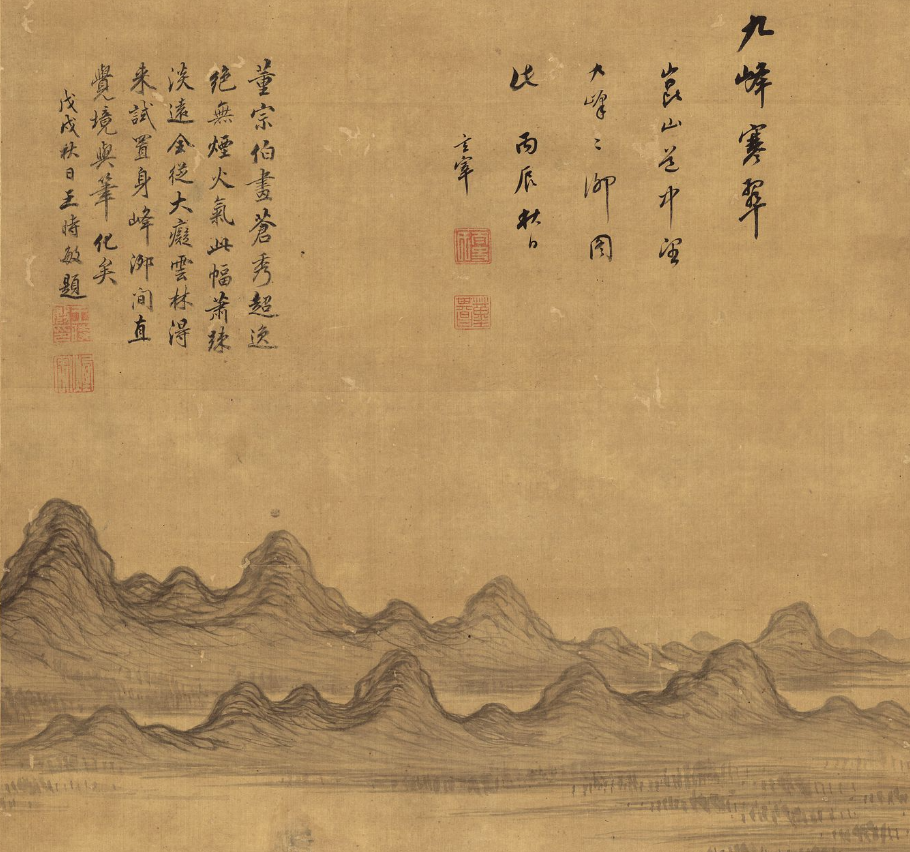 九峰寒翠
崑山道中望
九峰三泖圖
此 丙辰秋日
玄宰
董宗伯畫蒼秀超逸
絕無煙火氣此幅蕭疎
淡遠全從大癡雲林得
来試置身峰泖間直
覺境與筆化矣
戊戌秋日王時敏題